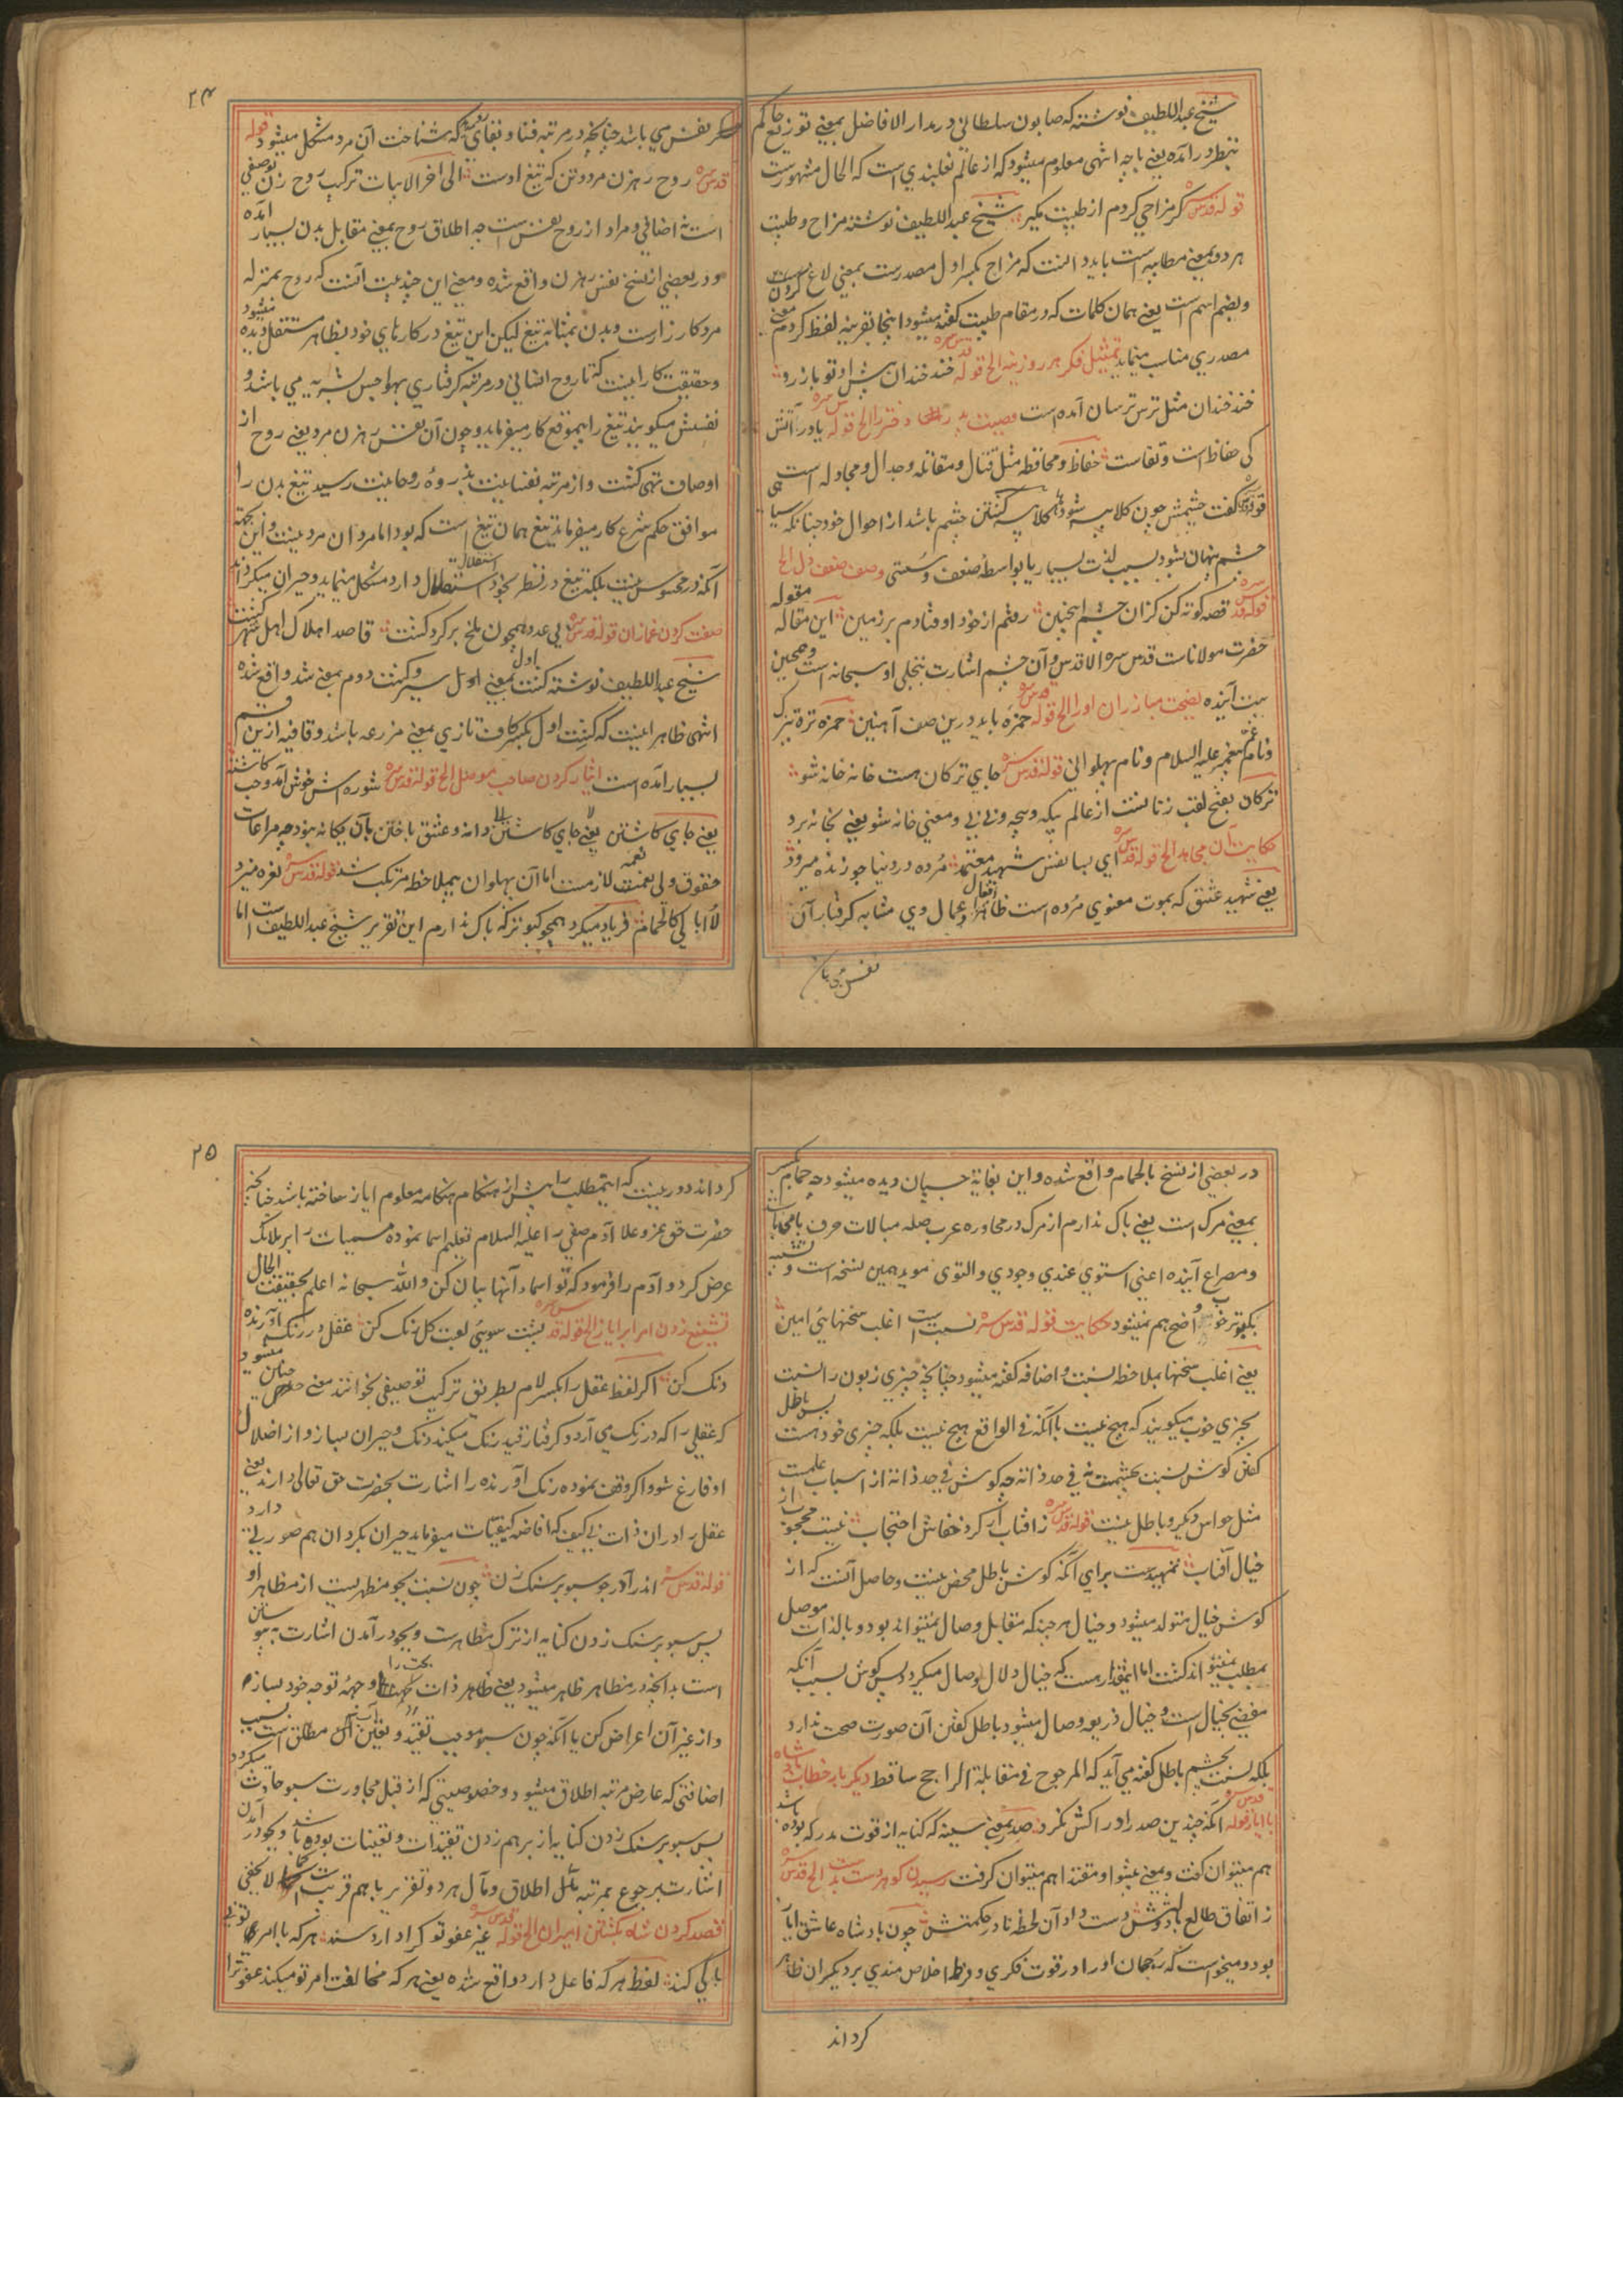 شیخ عبداللطیف نوشته که صابون سلطانی در مدار الافاضل بمعنی توزیع حاکم
بنظر در آمده یعنی باجه انتهی معلوم میشود که از عالم نعلبندی است که الحال مشهورست
قوله قدس سره کر مزاحی کردم از طیبت مکیر شیخ عبداللطیف نوشته مزاح و طیبت
هر دو بمعنی مطایبه است باید دانست که مزاح بکسر اول مصدرست بمعنی لاغ کردن
و بضم اسم است یعنی همان کلمات که در مقام طیبت کفته میشود اینجا بقرینه لفظ کردم معنی
مصدری مناسب مینماید تمثیل فکر هر روزینه الخ قوله قدس سره خند خندان پیش او تو باز رو
خند خندان مثل ترس ترسان آمده است وصیت پدر دختر را الخ قوله یا در آتش
کی حفاظ است و تقاست حفاظ و محافظه مثل قتال و مقاتله و جدال و مجادله است
قوله کفت چشمش چون کلاپیسه شود کلاپیسه کشتن چشم باشد از احوال خود چنانکه سیاهی
چشم پنهان شود بسبب لذت بسیار یا بواسطه ضعف و سستی وصف ضعف دل الخ
قوله قدس سره قصه کوته کن کزان چشم اینچنین رفتم از خود اوفتادم بر زمین این مقاله مقوله
حضرت مولاناست قدس سره الاقدس و آن چشم اشارت بتجلی او سبحانه است و همچنین
بیت آینده نصیحت مبارزان او را الخ قوله قدس سره حمزه باید درین صف آهنین حمزه تره تیزک
و نام عم پیغمبر علیه السلام و نام پهلوانی قوله قدس سره جای ترکان هست خانه خانه شو
ترکان بفتح لقب زنانست از عالم بیکه و بیچه و بی بی و معنی خانه شو یعنی بخانه برو
حکایت آن مجاهد الخ قوله قدس سره ای بسا نفس شهید معتمد مرده در دنیا چو زنده میرود
یعنی شهید عشق که بموت معنوی مرده است ظاهر افعال و اعمال وی مشابه کرفتار آن
نفس می باشد
۲۴
نفس می باشد چنانچه در مرتبه فنا و بقای که شناخت آن مرد مشکل میشود قوله
قدس سره روح رهزن مرد و تن که تیغ اوست الی آخر الابیات ترکیب روح رهزن توصیفی
است نه اضافی و مراد از روح نفس است چه اطلاق روح بمعنی مقابل بدن بسیار آمده
و در بعضی از نسخ نفس رهزن واقع شده و معنی این چند بیت آنست که روح بمنزله
مرد کارزارست و بدن بمثابه تیغ لیکن این تیغ در کارهای خود بظاهر مستقل دیده میشود
و حقیقت کار اینست که تا روح انسانی در مرتبه کرفتاری بهواجس بشریه می باشد و
نفسش میکویند تیغ را بیموقع کار میفرماید و چون آن نفس رهزن مرد یعنی روح از
اوصاف تهی کشت و از مرتبه نفسانیت بذروه روحانیت رسید تیغ بدن را
موافق حکم شرع کار میفرماید تیغ همان تیغ است که بود اما مرد آن مرد نیست و این نکته
آنکه در محسوس نیست بلکه تیغ در نظر بخود استقلال دارد مشکل مینماید و حیران میکرداند
صفت کردن غمازان قوله قدس سره بی عدد همچون ملخ بر کرد کشت قاصد اهلاک اهل شهر کشت
شیخ عبداللطیف نوشته کشت اول بمعنی سیر و کشت دوم بمعنی شد واقع شده
انتهی ظاهر اینست که کشت اول بکسر کاف تازی بمعنی مزرعه باشد و قافیه ازین قسم
بسیار آمده است ایثار کردن صاحب موصل الخ قوله قدس سره شوره اش خوش آمد و حب کاشته
یعنی جای کاشتن یعنی جای کاشتن دانه و عشق باختن بآن بیکانه بود چه مراعات
حقوق ولی نعمت لازمست اما آن پهلوان بیملاحظه مرتکب شد قوله قدس سره نعره میزد
لا ابالی کالحمام فریاد میکرد همچو کبوتر که باک ندارم این تقریر شیخ عبداللطیف است اما
در بعضی از نسخ بالحمام واقع شده و این بغایة چسپان دیده میشود چه حمام بکسر
بمعنی مرک است یعنی باک ندارم از مرک در محاوره عرب صله مبالات حرف با می باشد
و مصراع آینده اعنی استوی عندی وجودی والتوی موید همین نسخه است و تشبیه
بکبوتر خوب واضح هم نمیشود حکایت قوله قدس سره نسبت است اغلب سخنهایی امین
یعنی اغلب سخنها بملاحظه نسبت و اضافه کفته میشود چنانچه چیزی زبون را نسبت
بچیزی خوب میکویند که هیچ نیست باآنکه فی الواقع هیچ نیست بلکه چیزی خود هست پس باطل
کفتن کوش نسبت بچشمست نه فی حد ذاته چه کوش فی حد ذاته از اسباب علمست
مثل حواس دیکر و باطل نیست قوله قدس سره ز آفتاب ار کرد خفاش احتجاب نیست محجوب از
خیال آفتاب تمهیدست برای آنکه کوش باطل محض نیست و حاصل آنست که از
کوش خیال متولد میشود و خیال هر چند که مقابل وصال نمیتواند بود و بالذات موصل
بمطلب نمیتواند کشت اما اینقدر هست که خیال دلال وصال میکردد پس کوش بسبب آنکه
مفضی بخیال است و خیال ذریعه وصال میشود باطل کفتن آن صورت صحت ندارد
بلکه نسبت بچشم باطل کفته می آید که المرجوح فی مقابلة الراجح ساقط دیکر باره خطاب شاه
با ایاز قوله قدس سره آنکه چندین صدر او را کش نکرد صدر بمعنی سینه که کنایه از قوت مدرکه بوده باشد
هم میتوان کفت و بمعنی پیشوا و مقتدا هم میتوان کرفت رسیدن کوهر دست بدست الخ قدس سره
ز اتفاق طالع با دولتش دست داد آن لحظه نادر حکمتش چون بادشاه عاشق ایاز
بود و میخواست که رجحان او را در قوت فکری و فرط اخلاص مندی بر دیکران ظاهر
کرداند
۲۵
کرداند دور نیست که اینمطلب را پیش از هنکام هنکامه معلوم ایاز ساخته باشد چنانچه
حضرت حق عز و علا آدم صفی را علیه السلام تعلیم اسما نموده مسمیات را بر ملائک
عرض کرد و آدم را فرمود که تو اسماء آنها بیان کن و الله سبحانه اعلم بحقیقت الحال
تشنیع زدن امرا بر ایاز الخ قوله قدس سره پشت سوی لعبت کل رنک کن عقل در رنک آورنده
دنک کن اکر لفظ عقل را بکسر لام بطریق ترکیب توصیفی بخوانند معنی چنان میشود
که عقلی را که در رنک می آرد و کرفتار قید رنک میکند دنک و حیران بساز و از اضلال
او فارغ شو و اکر وقف نموده رنک آورنده را اشارت بحضرت حق تعالی دارند یعنی
عقل را در آن ذات بی کیف که افاضه کیفیات میفرماید حیران بکردان هم صورتی دارد
قوله قدس سره اندر آ در جو سبو بر سنک زن چون نسبت بجو مظهریست از مظاهر او
پس سبو بر سنک زدن کنایه از ترک مظاهرست و بجو در آمدن اشارت به پیوستن
است بدانچه در مظاهر ظاهر میشود یعنی ظاهر ذات بحت را وجهه توجه خود بسازم
و از غیر آن اعراض کن یا آنکه چون سبو موجب تقید و تعین آب مطلق است بسبب
اضافتی که عارض مرتبه اطلاق میشود و خصوصیتی که از قبل مجاورت سبو حادث میکردد
پس سبو بر سنک زدن کنایه از برهم زدن تقیدات و تعینات بوده باشد و بجو در آمدن
اشارت برجوع بمرتبه اطلاق و مآل هر دو تقریر باهم قریب است کما لا یخفی
قصد کردن شاه بکشتن امیران الخ قوله قدس سره غیر عفو تو کرا دارد سند هر که با امر تو
بی باکی کند لفظ هر که فاعل دارد واقع شده یعنی هر که مخالفت امر تو میکند عفو ترا